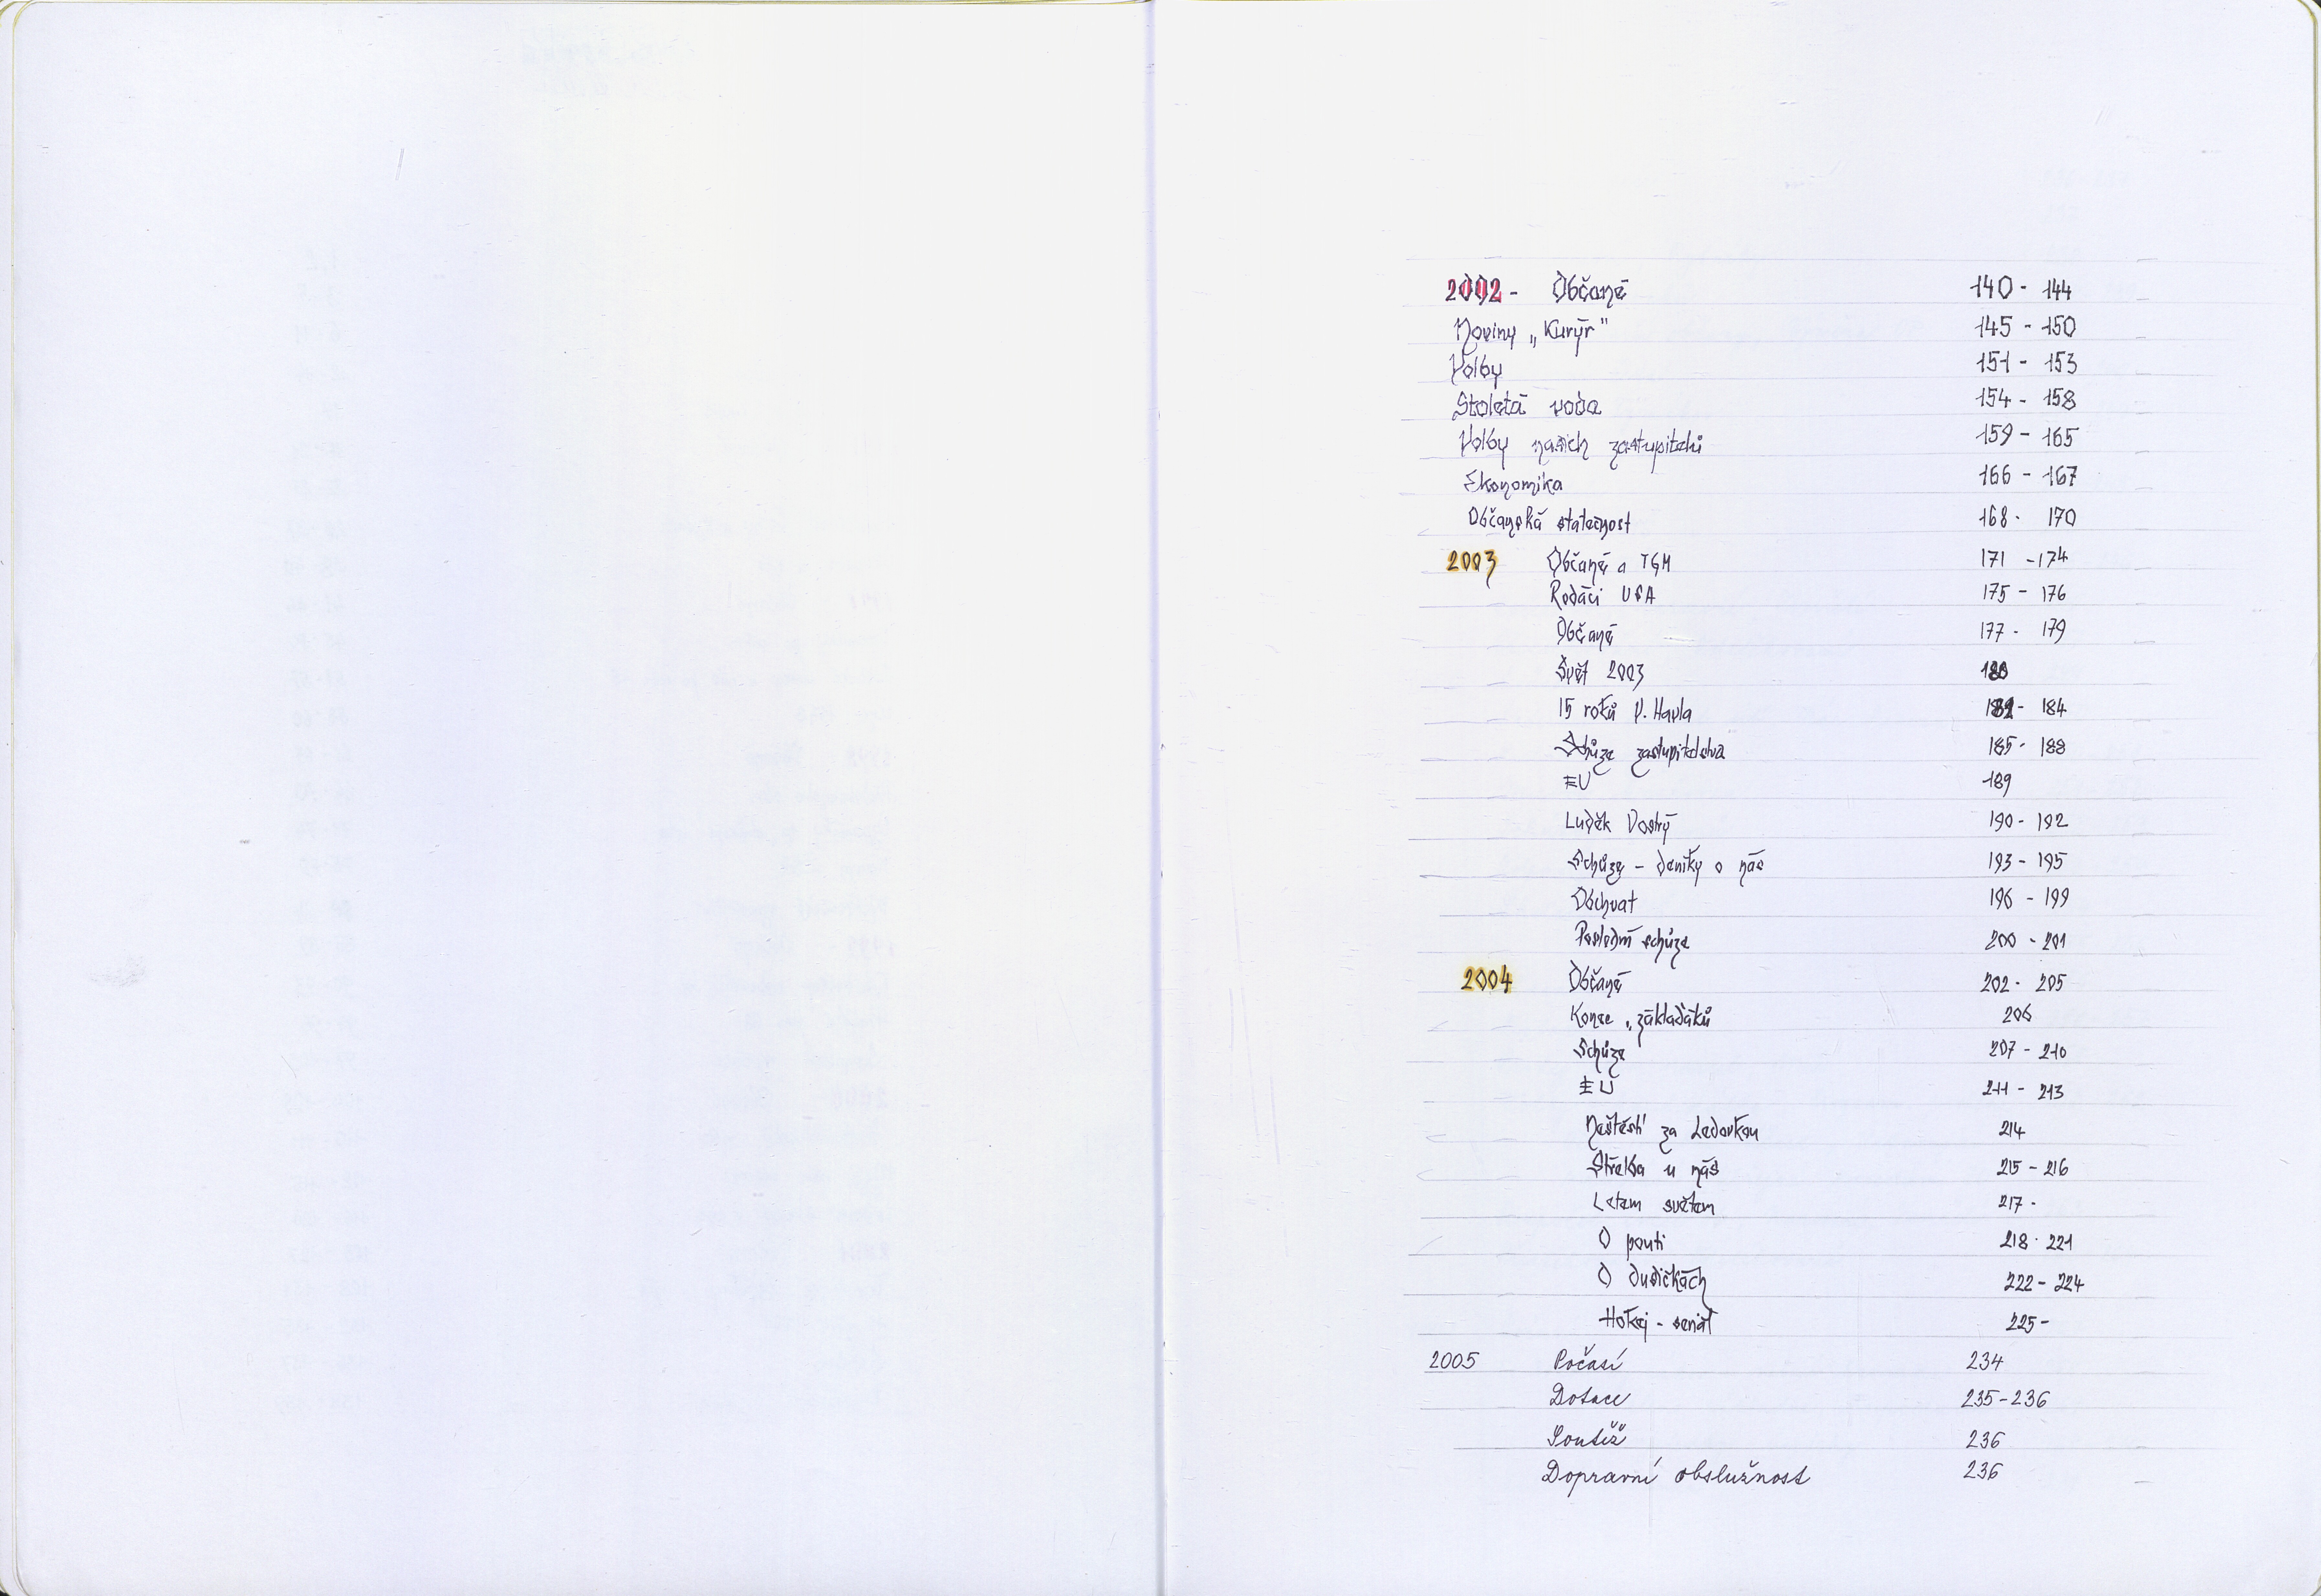 2002 - Občané 140 - 144
Noviny „Kurýr" 145 - 150
Volby 151 - 153
Stoletá voda 154 - 158
Volby našich zastupitelů 159 - 165
Ekonomika 166 - 167
Občanská statečnost 168 - 170
2003 Občané a TGM 171 - 174
Rodáci USA 175 - 176
Občané 177 - 179
Svět 2003 180
15 roků V. Havla 182 - 184
Schůze zastupitelstva 185 - 188
EU 189
Luděk Vostrý 190 - 192
Schůze - deníky o nás 193 - 195
Obchvat 196 - 199
Poslední schůze 200 - 201
2004 Občané 202 - 205
Konec „základáků 206
Schůze 207 - 210
EU 211 - 213
Neštěstí za Ledovkou 214
Střelba u nás 215 - 216
Letem světem 217 -
O pouti 218 - 221
O dušičkách 222 - 224
Hokej - senát 225 -
2005 Počasí 234
Dotace 235-236
Soutěž 236
Dopravní obslužnost 236